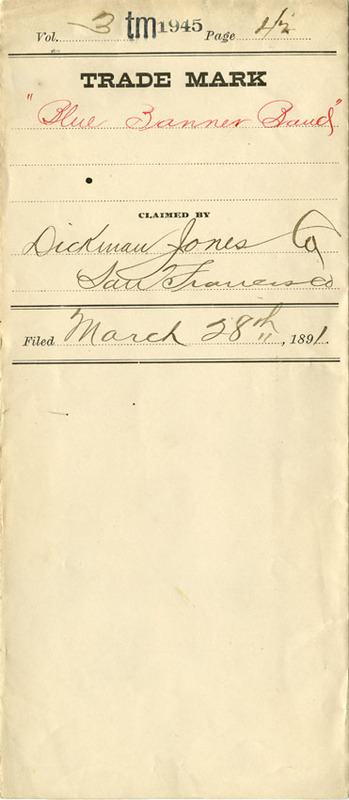 Vol. 3 tm 1945 Page 42
TRADE MARK
"Blue Banner Band"
CLAIMED BY
Dickman Jones Co
San Francisco
Filed March 28th, 1891.